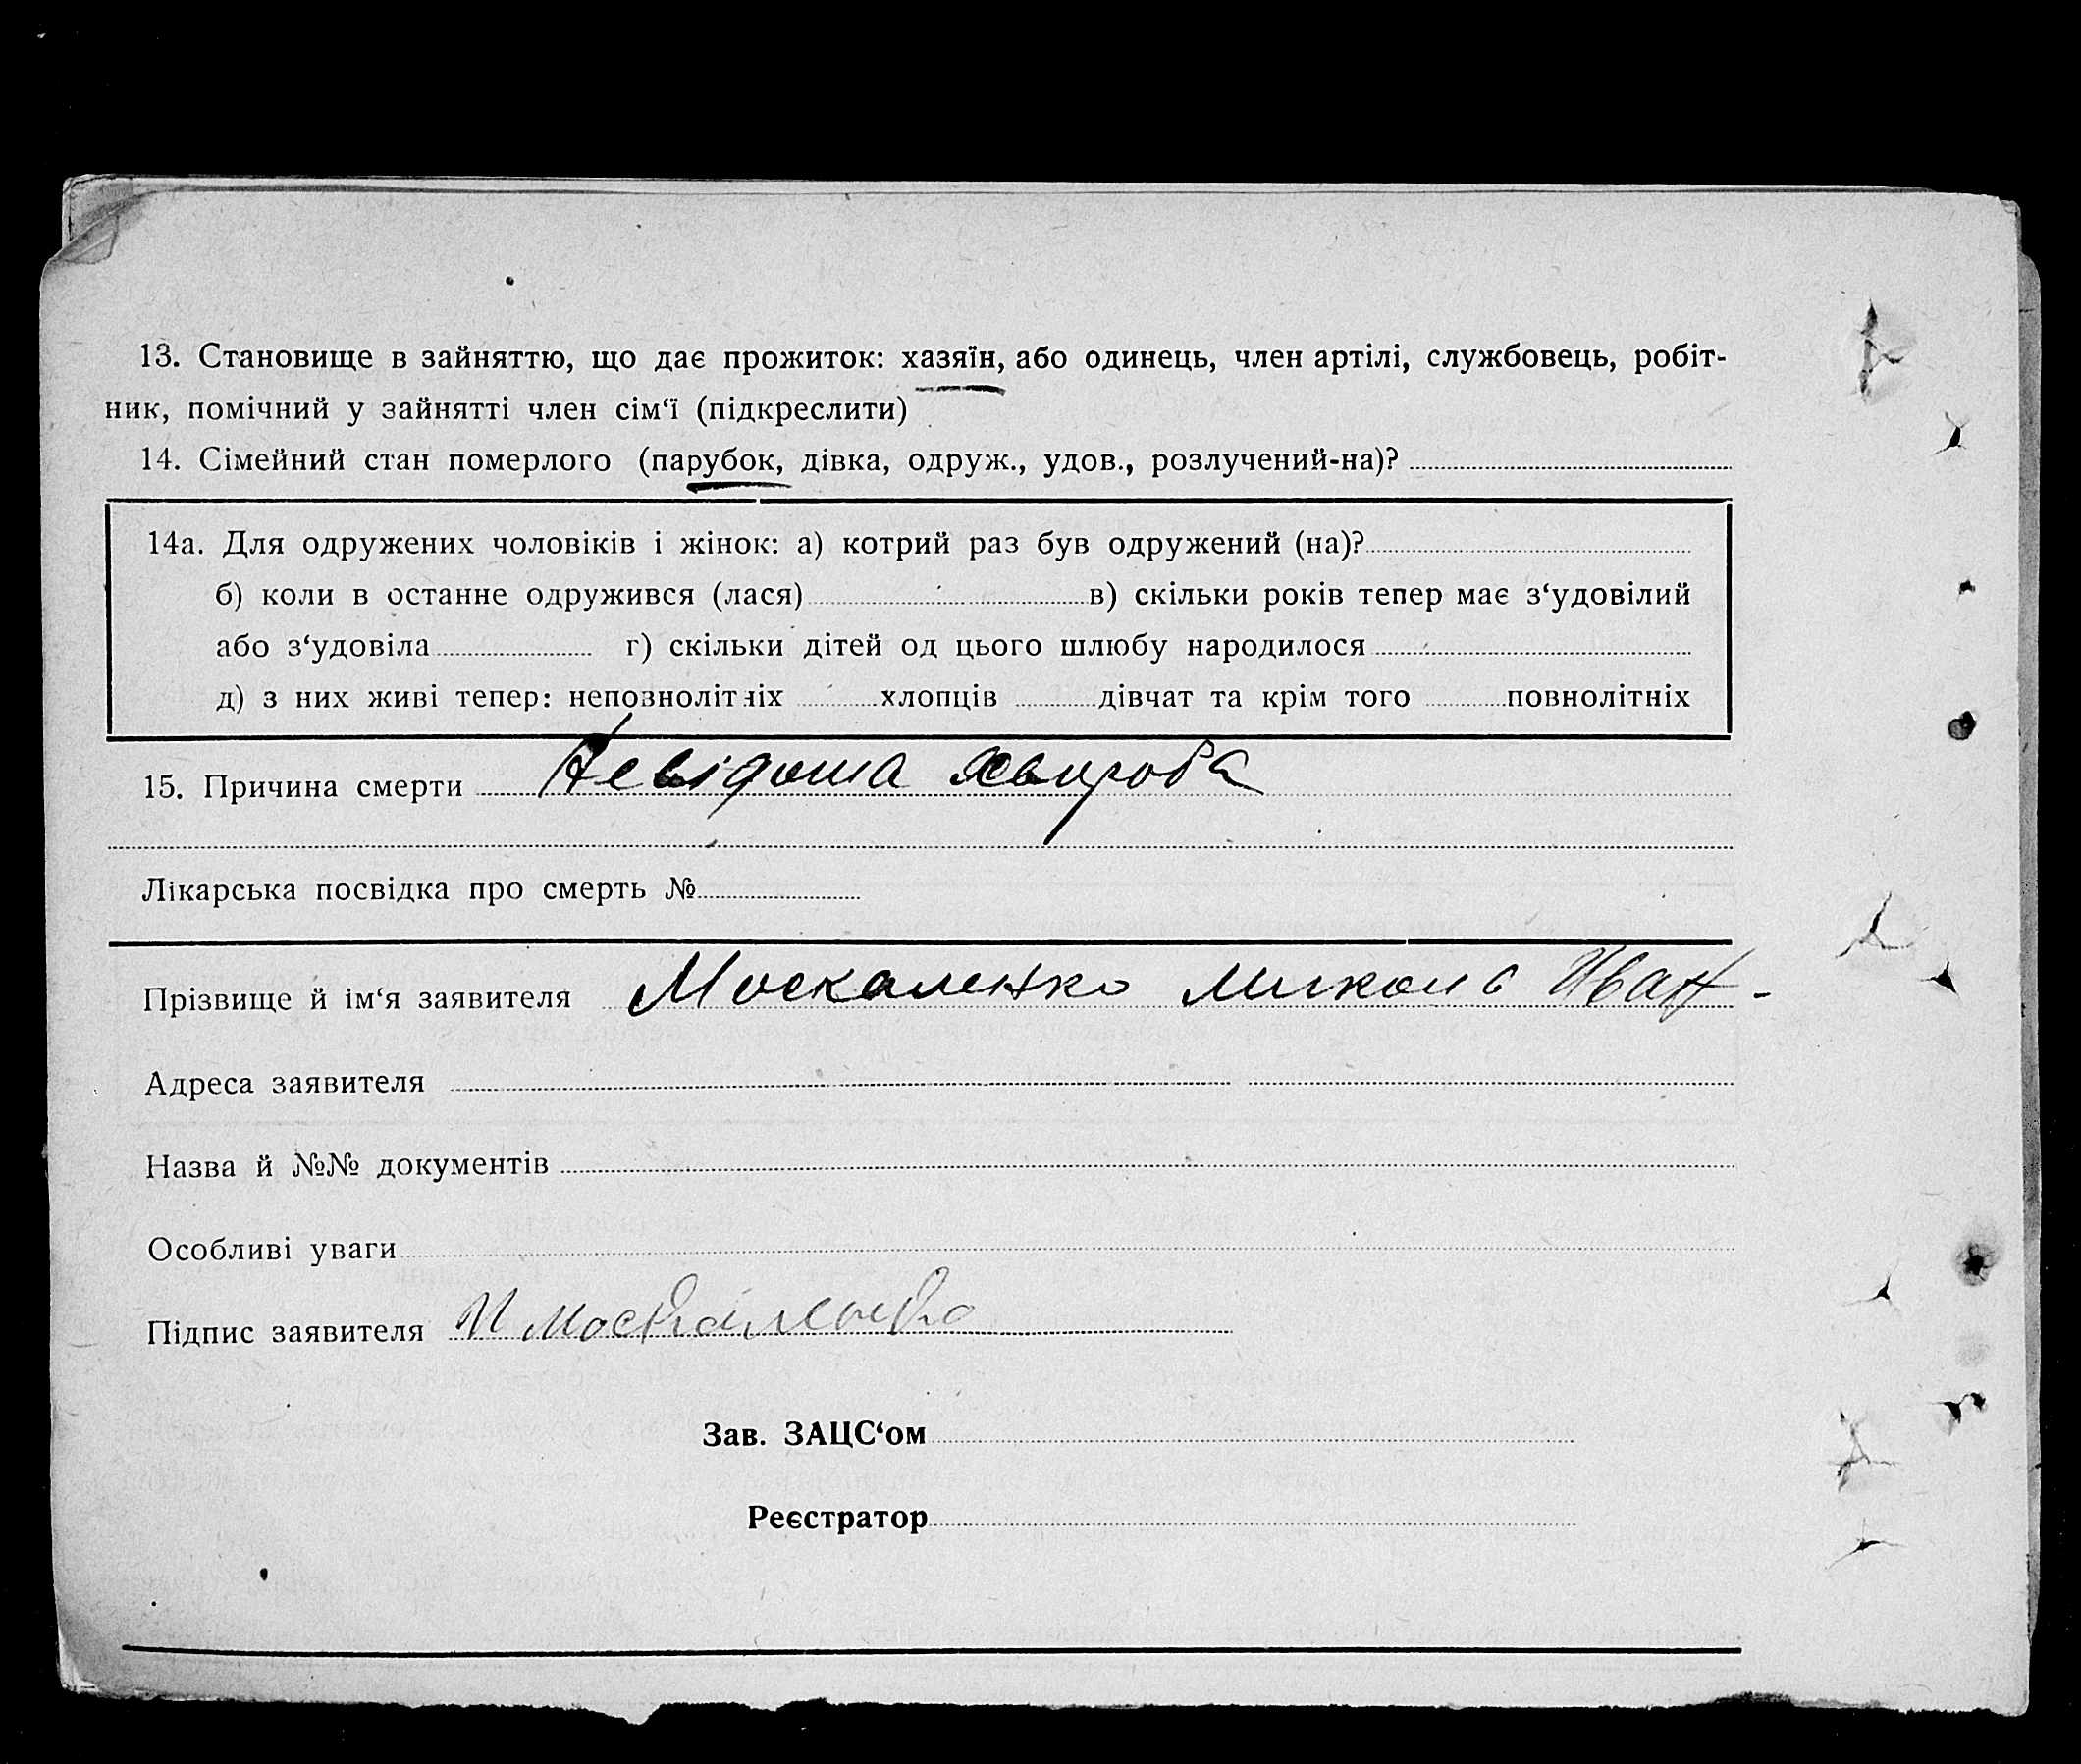 13. Становище в зайняттю, що дає прожиток: хазяїн, або одинець, член артілі, службовець, робіт-
ник, помічний у зайнятті член сім‘ї (підкреслити)
14. Сімейний стан померлого (парубок, дівка, одруж., удов., розлучений-на)?
14а. Для одружених чоловіків і жінок: а) котрий раз був одружений (на)?
б) коли в останне одружився (лася) в) скільки років тепер має з‘удовілий
або з‘удовіла г) скільки дітей од цього шлюбу народилося
д) з них живі тепер: неповнолітніх хлопців дівчат та крім того повнолітніх
15. Причина смерти Невідома хвороба
Лікарська посвідка про смерть №
Прізвище й ім‘я заявителя Москаленко Микола Иван-
Адреса заявителя
Назва й №№ документів
Особливі уваги
Підпис заявителя М Москаленко
Зав. ЗАЦС‘ом
Реєстратор